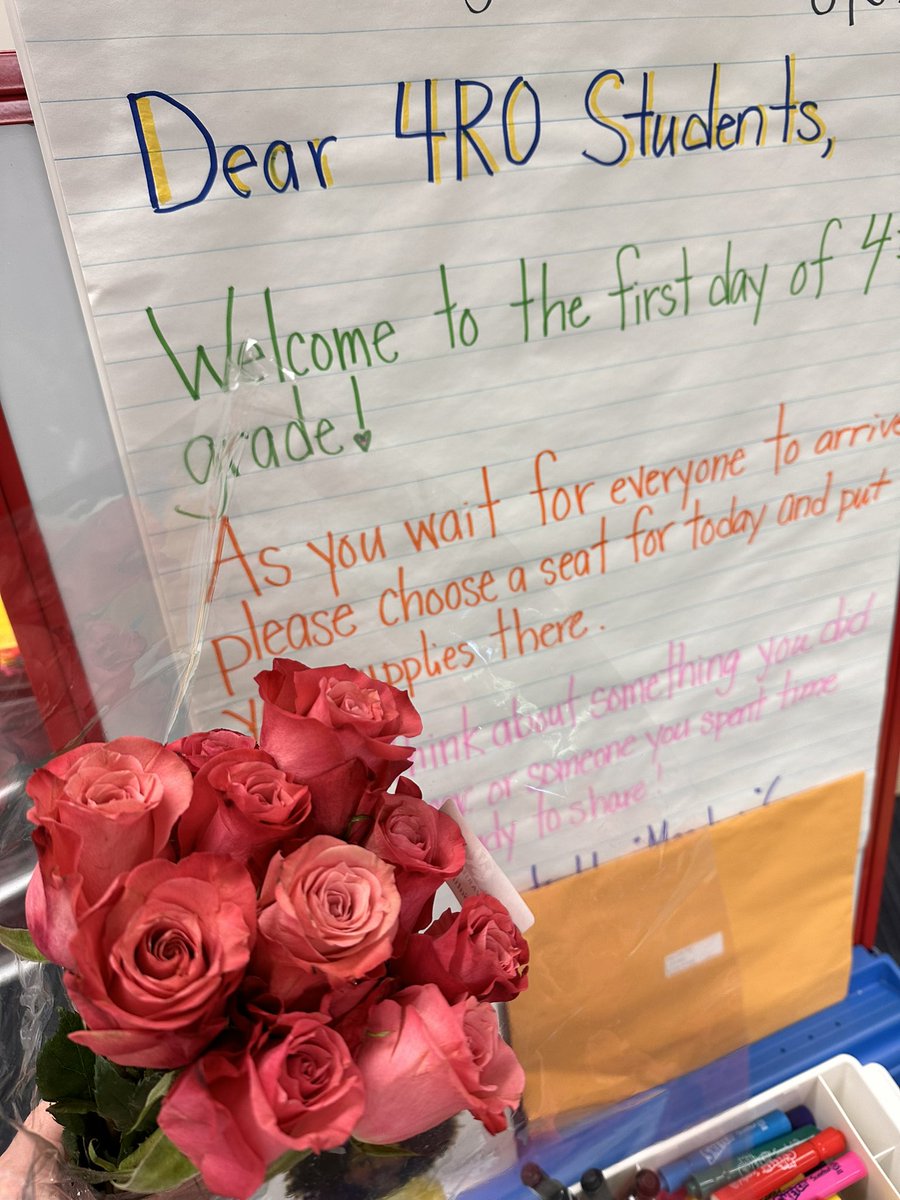 Dear 4RO Students,
Welcome to the first day of 4
grade!
As you wait for everyone to arrive
please choose a seat for today and put
supplies there.
think about something you did
or someone you spent time
to share!